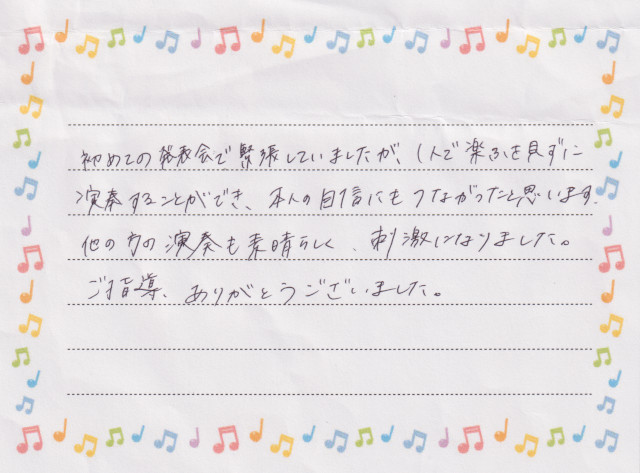 初めての発表会で緊張していましたが、1人で楽ふを見ずに
演奏することができ、本人の自信にもつながったと思います。
他の方の演奏も素晴らしく、刺激になりました。
ご指導、ありがとうございました。